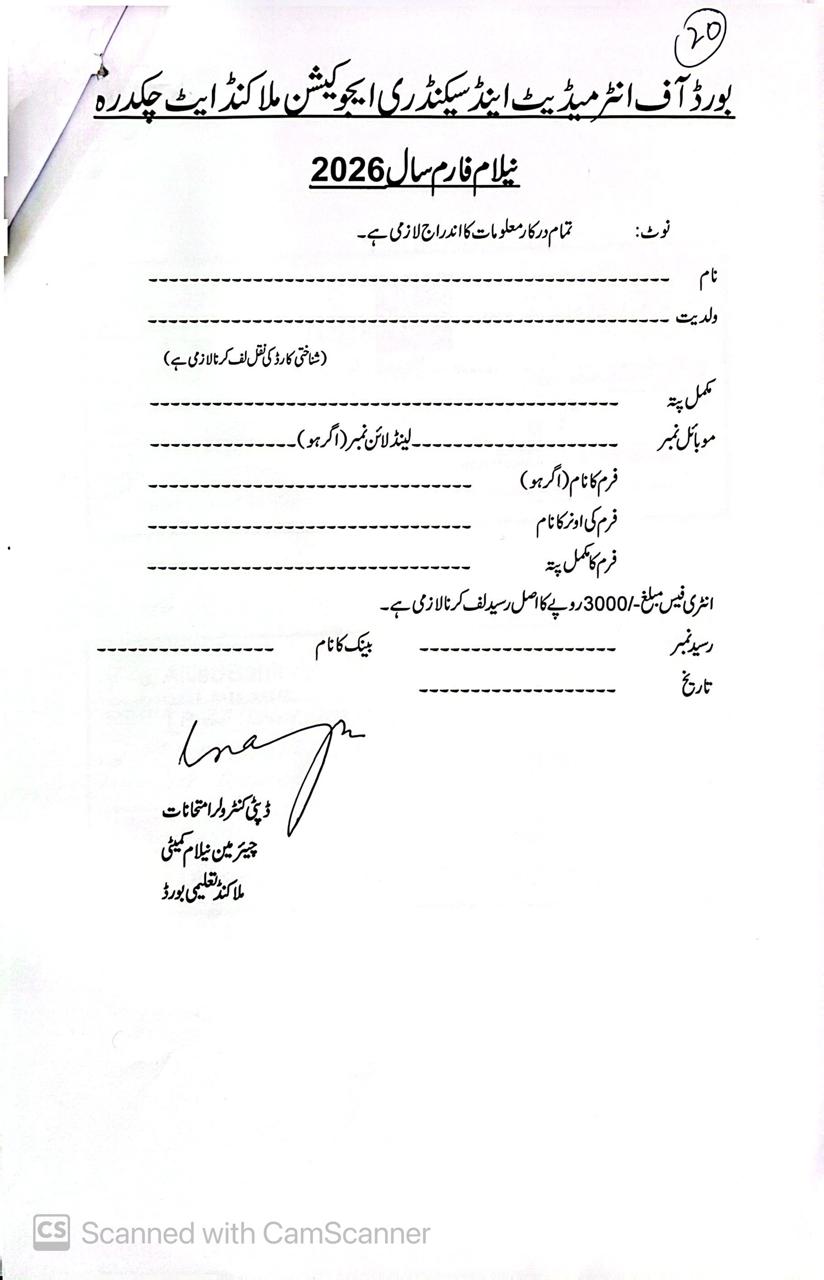 20
بورڈ آف انٹرمیڈیٹ اینڈ سیکنڈری ایجوکیشن ملاکنڈ ایٹ چکدرہ
نیلام فارم سال 2026
نوٹ: تمام درکار معلومات کا اندراج لازمی ہے۔
نام ----------------------------------------
ولدیت ----------------------------------------
(شناختی کارڈ کی نقل لف کرنا لازمی ہے)
مکمل پتہ ------------------------------------
موبائل نمبر ----------------لینڈ لائن نمبر (اگر ہو)-----------
فرم کا نام (اگر ہو) -------------------------
فرم کی اونر کا نام -------------------------
فرم کا مکمل پتہ -------------------------
انٹری فیس مبلغ -/3000 روپے کا اصل رسید لف کرنا لازمی ہے۔
رسید نمبر --------------- بینک کا نام --------------
تاریخ ---------------
ڈپٹی کنٹرولر امتحانات
چیئرمین نیلام کمیٹی
ملاکنڈ تعلیمی بورڈ
CS Scanned with CamScanner